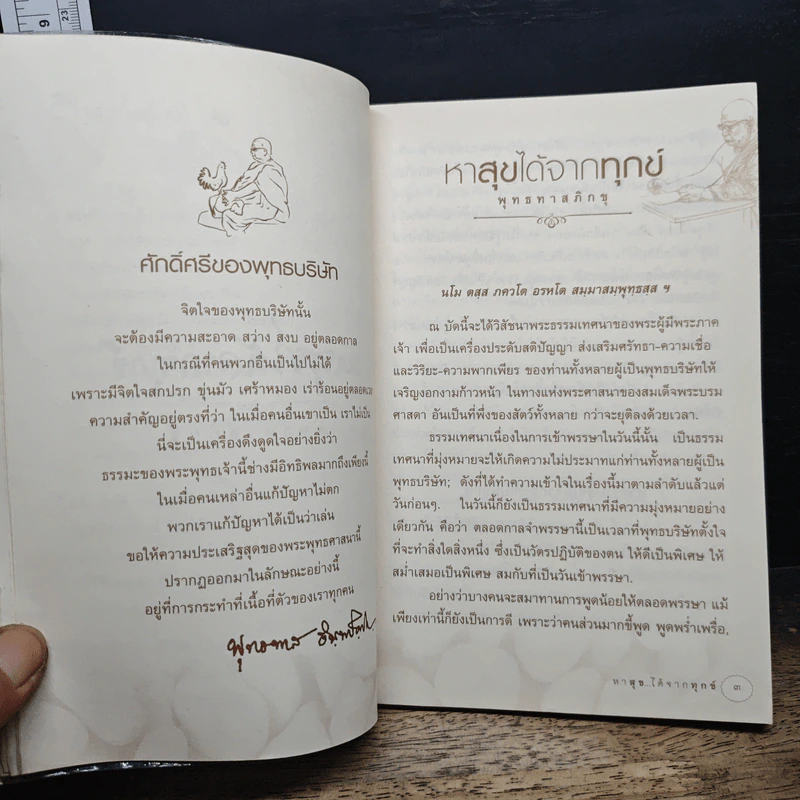 9
23
ศักดิ์ศรีของพุทธบริษัท
จิตใจของพุทธบริษัทนั้น
จะต้องมีความสะอาด สว่าง สงบ อยู่ตลอดกาล
ในกรณีที่คนพวกอื่นเป็นไปไม่ได้
เพราะมีจิตใจสกปรก ขุ่นมัว เศร้าหมอง เร่าร้อนอยู่ตลอดเวลา
ความสำคัญอยู่ตรงที่ว่า ในเมื่อคนอื่นเขาเป็น เราไม่เป็น
นี่จะเป็นเครื่องดึงดูดใจอย่างยิ่งว่า
ธรรมะของพระพุทธเจ้านี้ช่างมีอิทธิพลมากถึงเพียงนี้
ในเมื่อคนเหล่าอื่นแก้ปัญหาไม่ตก
พวกเราแก้ปัญหาได้เป็นว่าเล่น
ขอให้ความประเสริฐสุดของพระพุทธศาสนานี้
ปรากฏออกมาในลักษณะอย่างนี้
อยู่ที่การกระทำที่เนื้อที่ตัวของเราทุกคน
พุทธทาส อินทปัญโญ
หาสุขได้จากทุกข์
พุทธทาสภิกขุ
นโม ตสฺส ภควโต อรหโต สมฺมาสมฺพุทฺธสฺส ฯ
ณ บัดนี้จะได้วิสัชนาพระธรรมเทศนาของพระผู้มีพระภาค
เจ้า เพื่อเป็นเครื่องประดับสติปัญญา ส่งเสริมศรัทธา-ความเชื่อ
และวิริยะ-ความพากเพียร ของท่านทั้งหลายผู้เป็นพุทธบริษัทให้
เจริญงอกงามก้าวหน้า ในทางแห่งพระศาสนาของสมเด็จพระบรม
ศาสดา อันเป็นที่พึ่งของสัตว์ทั้งหลาย กว่าจะยุติลงด้วยเวลา.
ธรรมเทศนาเนื่องในการเข้าพรรษาในวันนี้นั้น เป็นธรรม
เทศนาที่มุ่งหมายจะให้เกิดความไม่ประมาทแก่ท่านทั้งหลายผู้เป็น
พุทธบริษัท; ดังที่ได้ทำความเข้าใจในเรื่องนี้มาตามลำดับแล้วแต่
วันก่อนๆ. ในวันนี้ก็ยังเป็นธรรมเทศนาที่มีความมุ่งหมายอย่าง
เดียวกัน คือว่า ตลอดกาลจำพรรษานี้เป็นเวลาที่พุทธบริษัทตั้งใจ
ที่จะทำสิ่งใดสิ่งหนึ่ง ซึ่งเป็นวัตรปฏิบัติของตน ให้ดีเป็นพิเศษ ให้
สม่ำเสมอเป็นพิเศษ สมกับที่เป็นวันเข้าพรรษา.
อย่างว่าบางคนจะสมาทานการพูดน้อยให้ตลอดพรรษา แม้
เพียงเท่านี้ก็ยังเป็นการดี เพราะว่าคนส่วนมากขี้พูด พูดพร่ำเพรื่อ,
หาสุข...ได้จากทุกข์ ๓